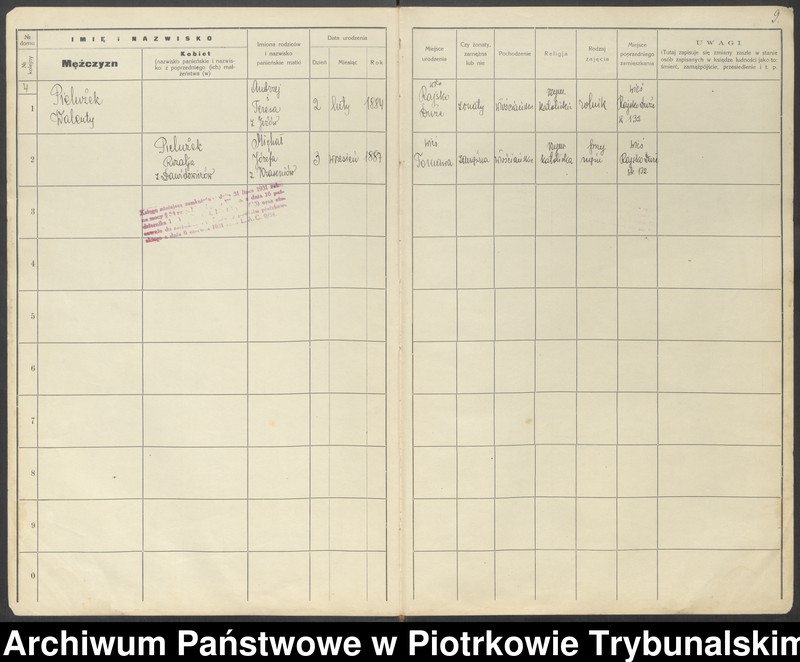 9.
№ domu
№ kolejny
IMIĘ i NAZWISKO
Mężczyzn
Kobiet
(nazwisko panieńskie i nazwisko z poprzedniego (ich) małżeństwa (w)
Imiona rodziców
i nazwisko
panieńskie matki
Data urodzenia
Dzień
Miesiąc
Rok
Miejsce
urodzenia
Czy żonaty,
zamężna
lub nie
Pochodzenie
Religja
Rodzaj
zajęcia
Miejsce
poprzedniego
zamieszkania
UWAGI.
(Tutaj zapisuje się zmiany zaszłe w stanie
osób zapisanych w księdze ludności jako to:
śmierć, zamążpójście, przesiedlenie i t. p.
4
1
Pielużek
Walenty
Andrzej
Teresa
z Jeżów
2
luty
1884
wieś
Rajsko
Duże
żonaty
włościańskie
rzym.
katolicka
rolnik
wieś
Rajsko Duże
№ 132
2
Pielużek
Rozalja
z Dawidowiczów
Michał
Józefa
3
wrzesień
1887
wieś
Tomawa
zamężna
włościańskie
rzym.
katolicka
przy
mężu
wieś
Rajsko Duże
№ 132.
3
4
5
6
7
8
9
0
Archiwum Państwowe w Piotrkowie Trybunalskim